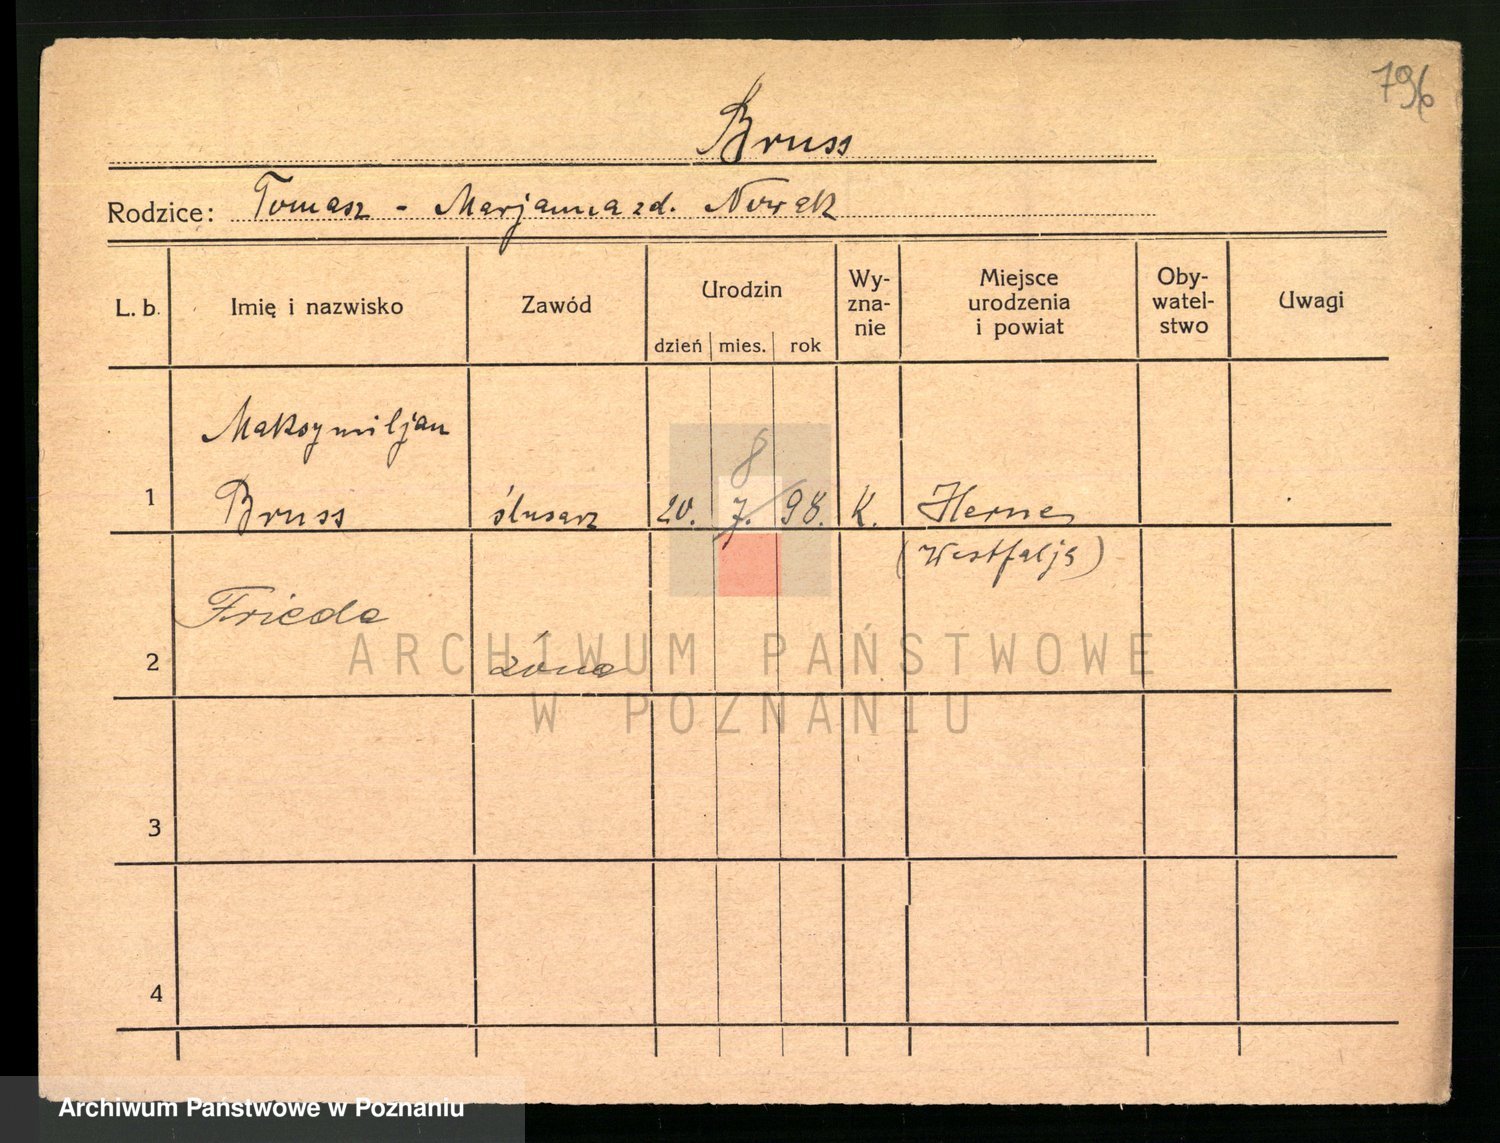 796
Bruss
Rodzice: Tomasz - Marjanna zd. Nowak
L. b.
Imię i nazwisko
Zawód
Urodzin
dzień
mies.
rok
Wy-
zna-
nie
Miejsce
urodzenia
i powiat
Oby-
watel-
stwo
Uwagi
Maksymiljan
8
1 Bruss ślusarz 20. 7. 98. K. Herne
(Westfalja)
Frieda
2 żona
3
4
ARCHIWUM PAŃSTWOWE
W POZNANIU
Archiwum Państwowe w Poznaniu